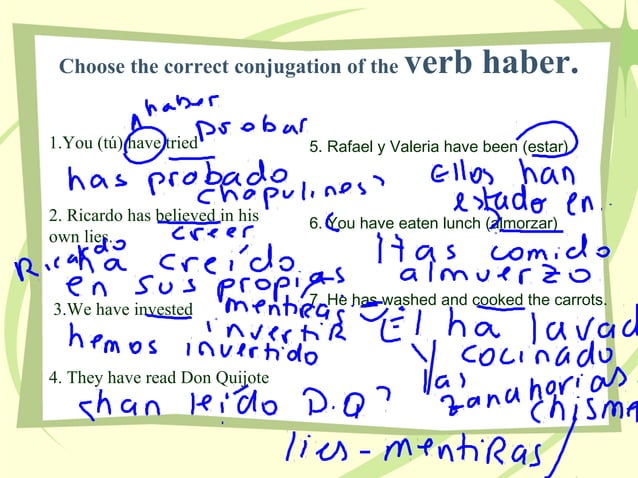 Choose the correct conjugation of the verb haber.
haber
probar
1.You (tú) have tried
has probado
chapulines?
2. Ricardo has believed in his
own lies.
creer
Ricardo
ha creído
en sus propias
mentiras
3.We have invested
invertir
hemos invertido
4. They have read Don Quijote
¿han leído D.Q?
5. Rafael y Valeria have been (estar)
Ellos han
estado en...
6. You have eaten lunch (almorzar)
¿Has comido
almuerzo
7. He has washed and cooked the carrots.
Él ha lavad
y cocinado
las
zanahorias
chisma
lies - mentiras/